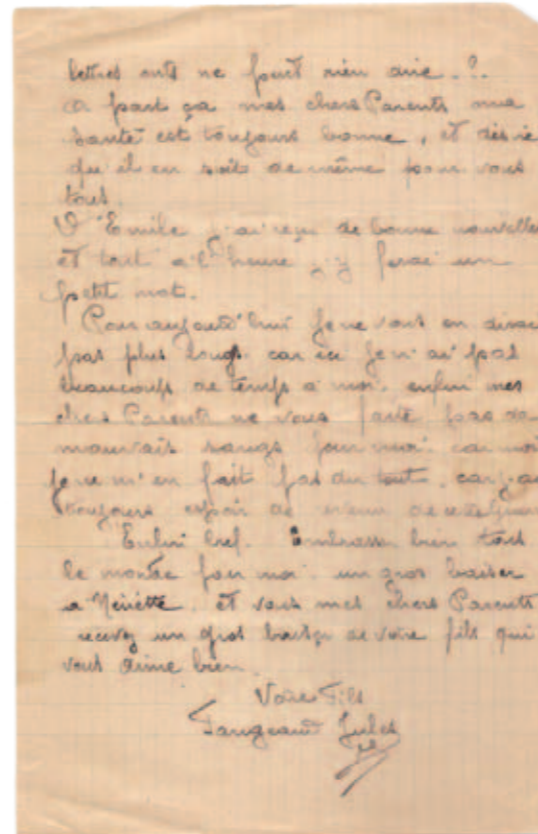 lettres ne font rien dire..?.
a part ça mes chers Parents ma
santé est toujours bonne, et désire
qu'il en soit de même pour vous
tous.
D'Emile j'ai reçu de bonne nouvelles
et tout a l'heure j'y ferai un
petit mot.
Pour aujourd'hui je ne vous en dirai
pas plus longs car ici je n'ai pas
beaucoups de temps a moi. enfin mes
chers Parents ne vous faite pas de
mauvais sangs pour moi. car moi
je ne m'en fait pas du tout, car j'ai
toujours espoir de
Enfin bref. Embrasser bien tous
le monde pour moi. un gros baiser
a Ninette, et vous mes chers Parents
recevez un gros baiser de votre fils qui
vous aime bien.
Votre Fils
Jules